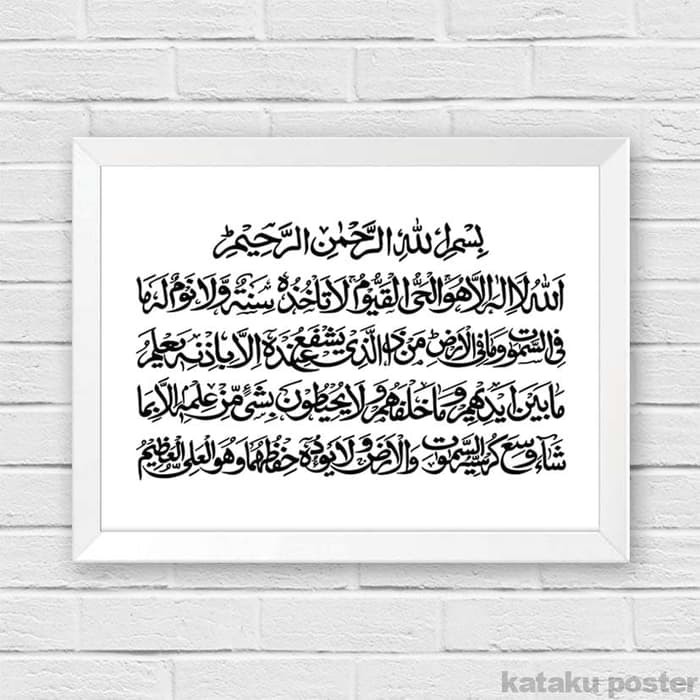 بِسْمِ اللهِ الرَّحْمٰنِ الرَّحِيْمِ
اَللهُ لَا اِلٰهَ اِلَّا هُوَ الْحَيُّ الْقَيُّوْمُ لَا تَأْخُذُهٗ سِنَةٌ وَّلَا نَوْمٌ لَهٗ مَا
فِى السَّمٰوٰتِ وَمَا فِى الْاَرْضِ مَنْ ذَا الَّذِىْ يَشْفَعُ عِنْدَهٗ اِلَّا بِاِذْنِهٖ يَعْلَمُ
مَا بَيْنَ اَيْدِيْهِمْ وَمَا خَلْفَهُمْ وَلَا يُحِيْطُوْنَ بِشَىْءٍ مِّنْ عِلْمِهٖ اِلَّا بِمَا
شَآءَ وَسِعَ كُرْسِيُّهُ السَّمٰوٰتِ وَالْاَرْضَ وَلَا يَئُوْدُهٗ حِفْظُهُمَا وَهُوَ الْعَلِىُّ الْعَظِيْمُ
kataku poster